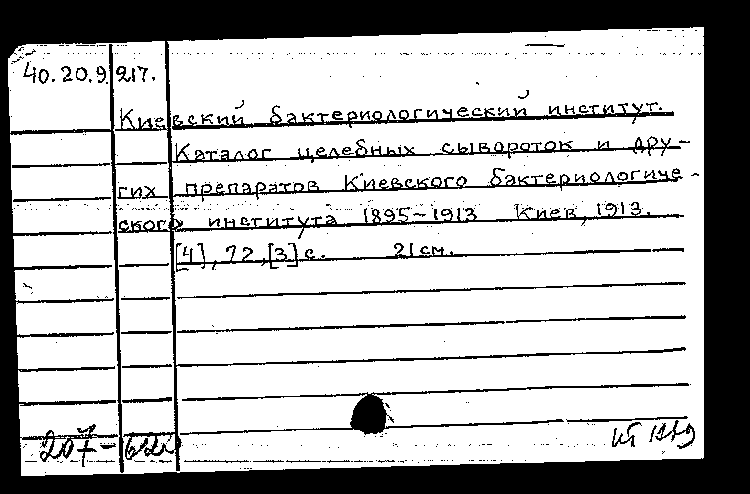 40.20.9.217.
Киевский бактериологический институт.
Каталог целебных сывороток и дру-
гих препаратов Киевского бактериологиче-
ского института 1895-1913 Киев, 1913.
[4], 72, [3] с. 21 см.
207-